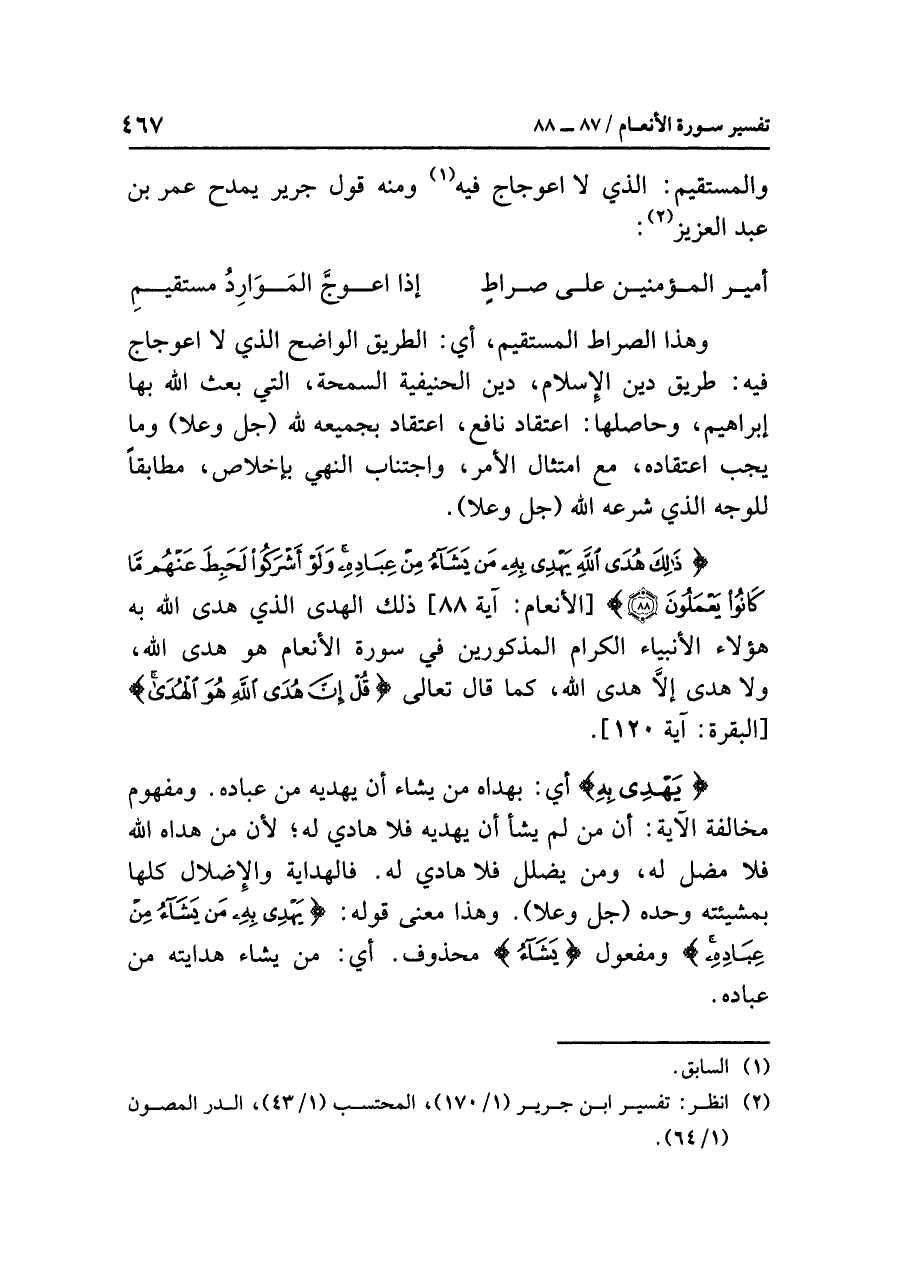 تفسير سـورة الأنعـام / ٨٧ ــ ٨٨ ٤٦٧
والمستقيم: الذي لا اعوجاج فيه(١) ومنه قول جرير يمدح عمر بن
عبد العزيز(٢):
أميـر المـؤمنيـن علـى صـراطٍ إذا اعـوجَّ المَـوَارِدُ مستقيـمِ
وهذا الصراط المستقيم، أي: الطريق الواضح الذي لا اعوجاج
فيه: طريق دين الإسلام، دين الحنيفية السمحة، التي بعث الله بها
إبراهيم، وحاصلها: اعتقاد نافع، اعتقاد بجميعه لله (جل وعلا) وما
يجب اعتقاده، مع امتثال الأمر، واجتناب النهي بإخلاص، مطابقاً
للوجه الذي شرعه الله (جل وعلا).
﴿ ذَٰلِكَ هُدَى ٱللَّهِ يَهْدِى بِهِۦ مَن يَشَآءُ مِنْ عِبَادِهِۦۚ وَلَوْ أَشْرَكُوا۟ لَحَبِطَ عَنْهُم مَّا
كَانُوا۟ يَعْمَلُونَ ۝٨٨ ﴾ [الأنعام: آية ٨٨] ذلك الهدى الذي هدى الله به
هؤلاء الأنبياء الكرام المذكورين في سورة الأنعام هو هدى الله،
ولا هدى إلاَّ هدى الله، كما قال تعالى ﴿ قُلْ إِنَّ هُدَى ٱللَّهِ هُوَ ٱلْهُدَىٰۗ ﴾
[البقرة: آية ١٢٠].
﴿ يَهْدِى بِهِ ﴾ أي: بهداه من يشاء أن يهديه من عباده. ومفهوم
مخالفة الآية: أن من لم يشأ أن يهديه فلا هادي له؛ لأن من هداه الله
فلا مضل له، ومن يضلل فلا هادي له. فالهداية والإضلال كلها
بمشيئته وحده (جل وعلا). وهذا معنى قوله: ﴿ يَهْدِى بِهِۦ مَن يَشَآءُ مِنْ
عِبَادِهِۦۚ ﴾ ومفعول ﴿ يَشَآءُ ﴾ محذوف. أي: من يشاء هدايته من
عباده.
(١) السابق.
(٢) انظـر: تفسيـر ابـن جـريـر (١/ ١٧٠)، المحتسـب (١/ ٤٣)، الـدر المصـون
(١/ ٦٤).